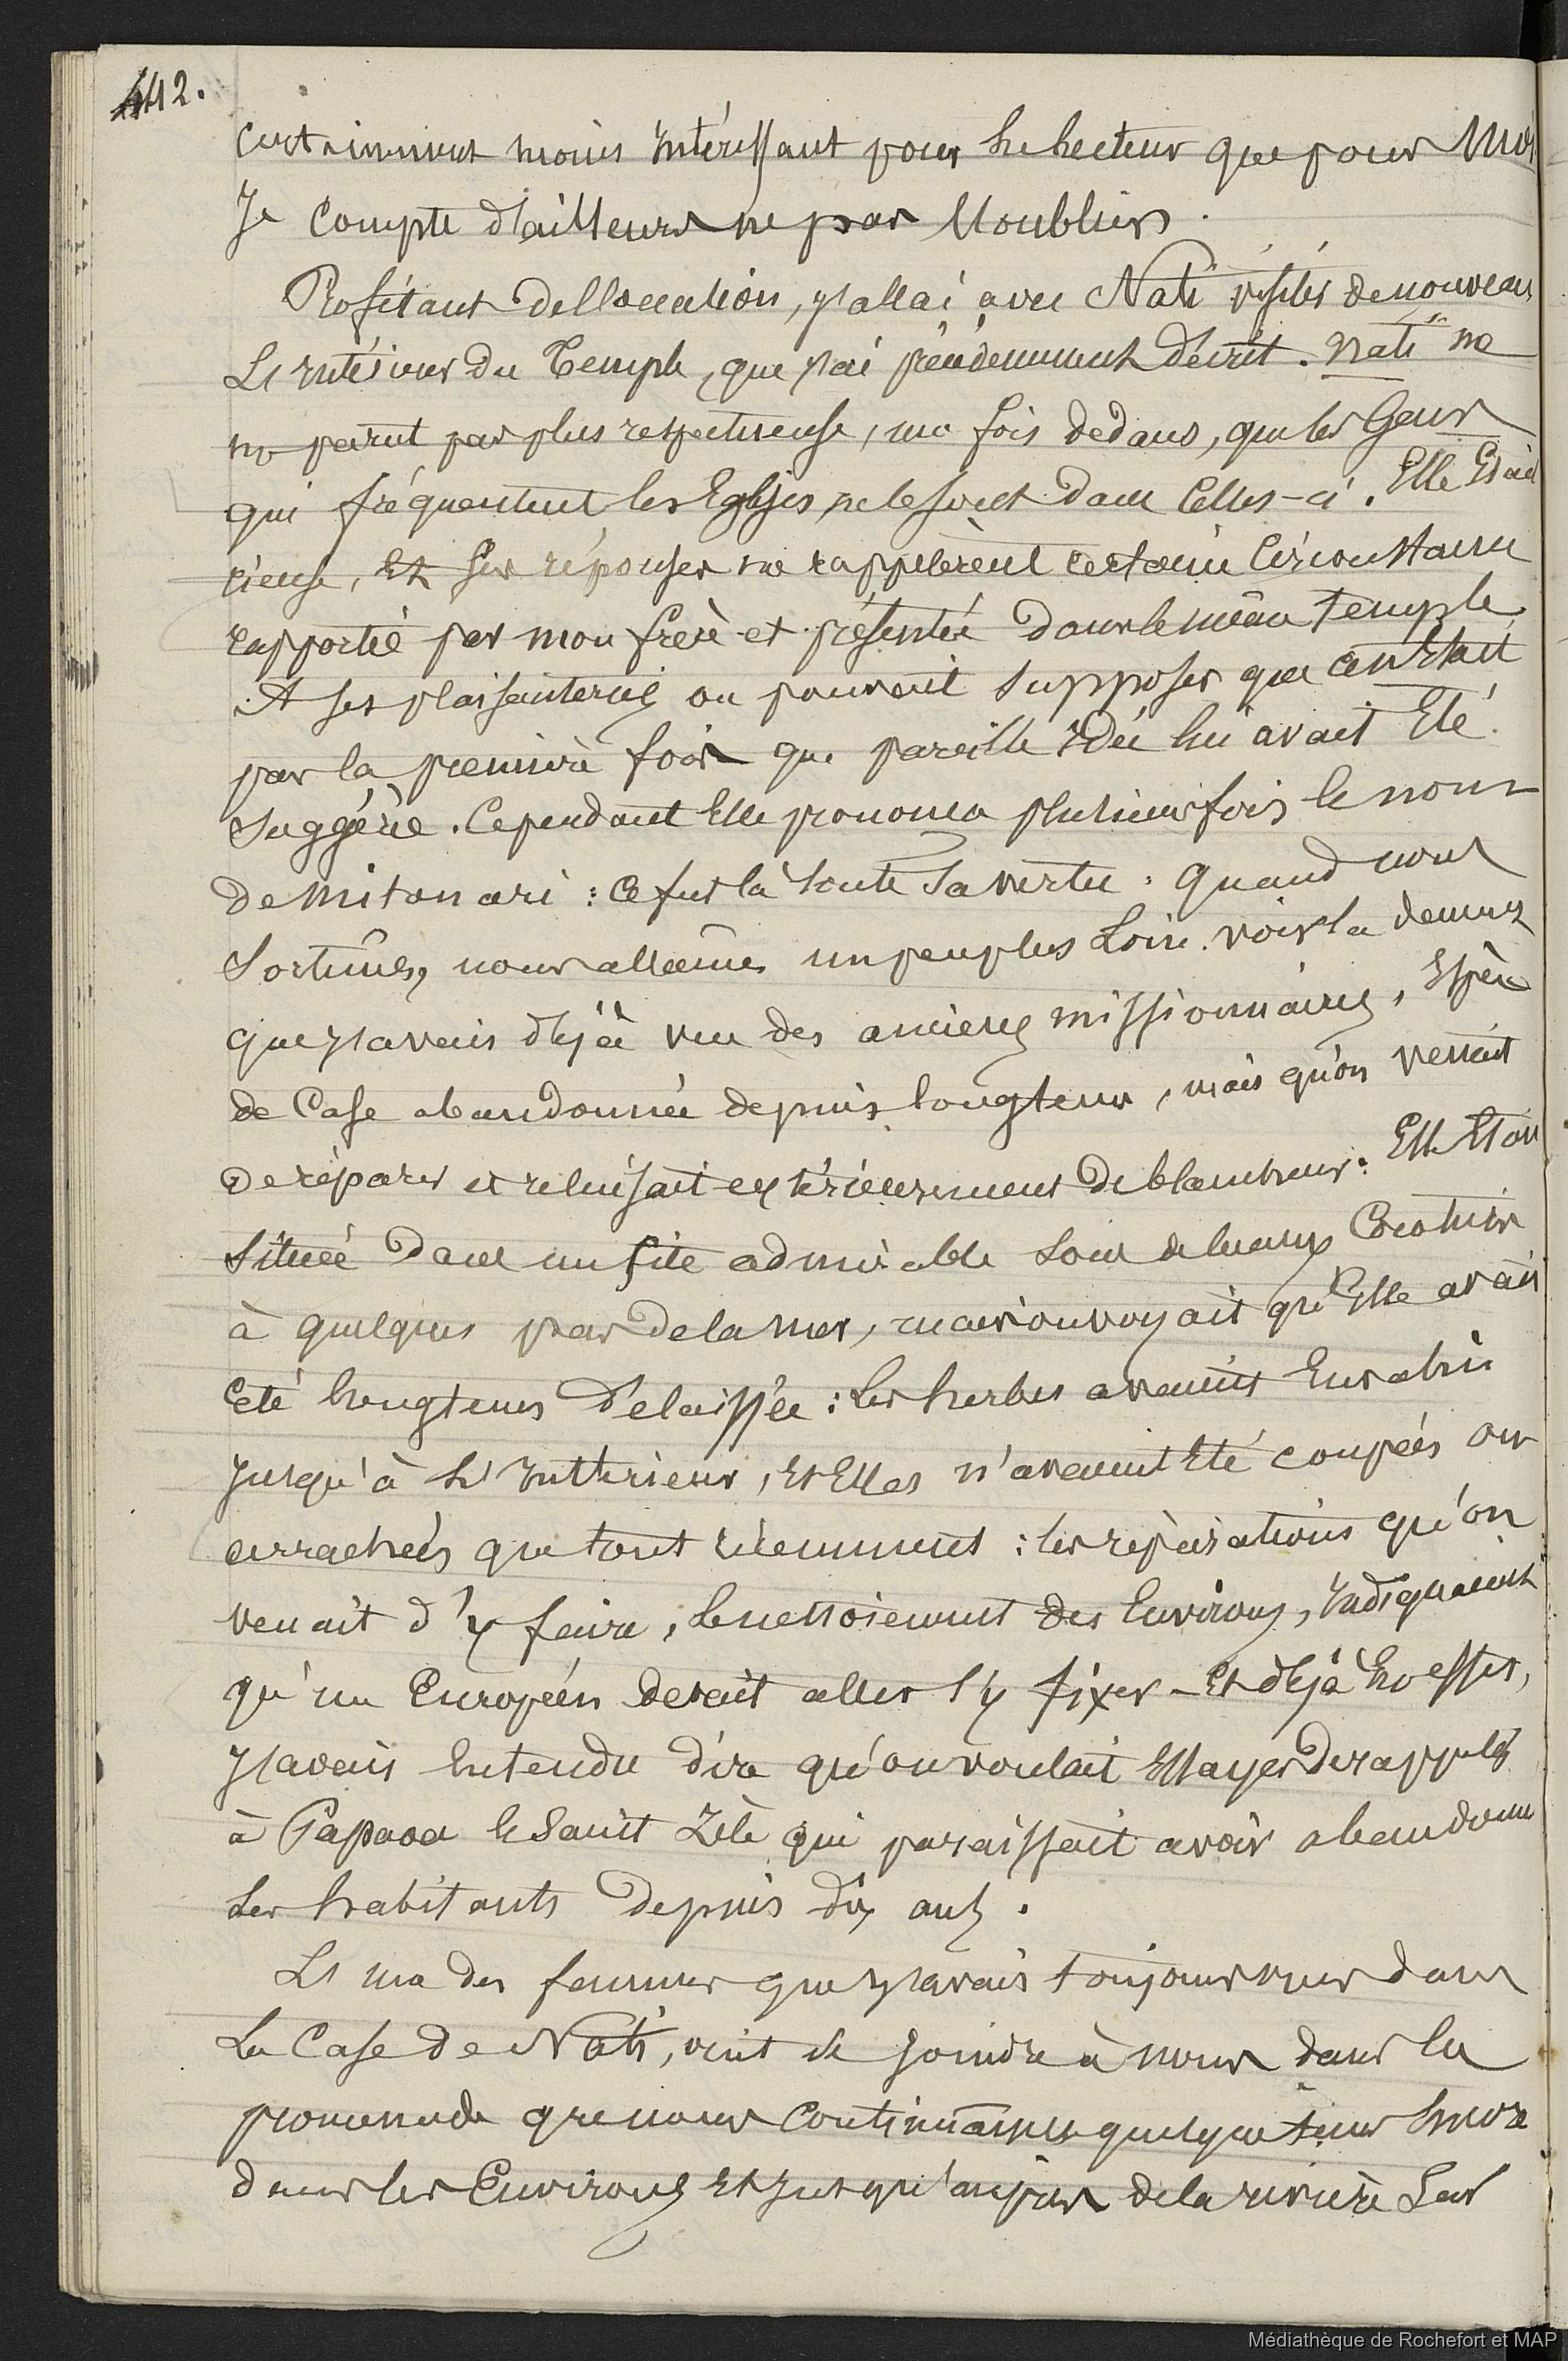 442.
Certainement moins Intéressant pour Le Lecteur que pour Moi
Je Compte d'ailleurs ne pas L'oublier.
Profitant de l'occasion, J'allai avec Nati visiter de nouveau
L'Intérieur du Temple, que J'ai précédemment décrit. Nati ne
me parut pas plus respectueuse, une fois dedans, que les Gens
qui fréquentent les Eglises ne le sont dans Celles-ci. Elle Etait
rieuse, Et Ses réponses me rappelèrent certaine Circonstance
rapportée par mon frère et présentée dans le même temple.
A ses plaisanteries on pouvait supposer que ce n'était
pas la première fois que pareille Idée lui avait Eté
Suggérée. Cependant Elle prononça plusieurs fois le nom
de mitonari : ce fut là toute Sa vertu. Quand nous
Sortîmes, nous allâmes un peu plus Loin voir la demeure
que J'avais déjà vue des anciens missionnaires, Espèce
de Case abandonnée depuis longtems, mais qu'on venait
de réparer et reluisait extérieurement de blancheur. Elle Etait
Située dans un site admirable sous de beaux Cocotiers
à quelques pas de la mer, mais on voyait qu'Elle avait
Eté longtems délaissée : Les herbes avaient Envahi
Jusqu'à L'Intterieur, Et Elles n'avaient Eté coupées ou
arrachées que tout récemment : les réparations qu'on
venait d'y faire, le nettoiement des Environs, Indiquaient
qu'un Européen devait aller s'y fixer - Et déjà En effet,
J'avais Entendu dire qu'on voulait Essayer de rappeler
à Papaoa le Saint Zèle qui paraissait avoir abandonné
Les habitants depuis dix ans.
L'une des femmes que J'avais toujours vues dans
La Case de Nati, vint se Joindre à nous dans la
promenade que nous Continuâmes quelque tems Encore
dans les Environs Et Jusqu'au pas de la rivière Sur
Médiathèque de Rochefort et MAP